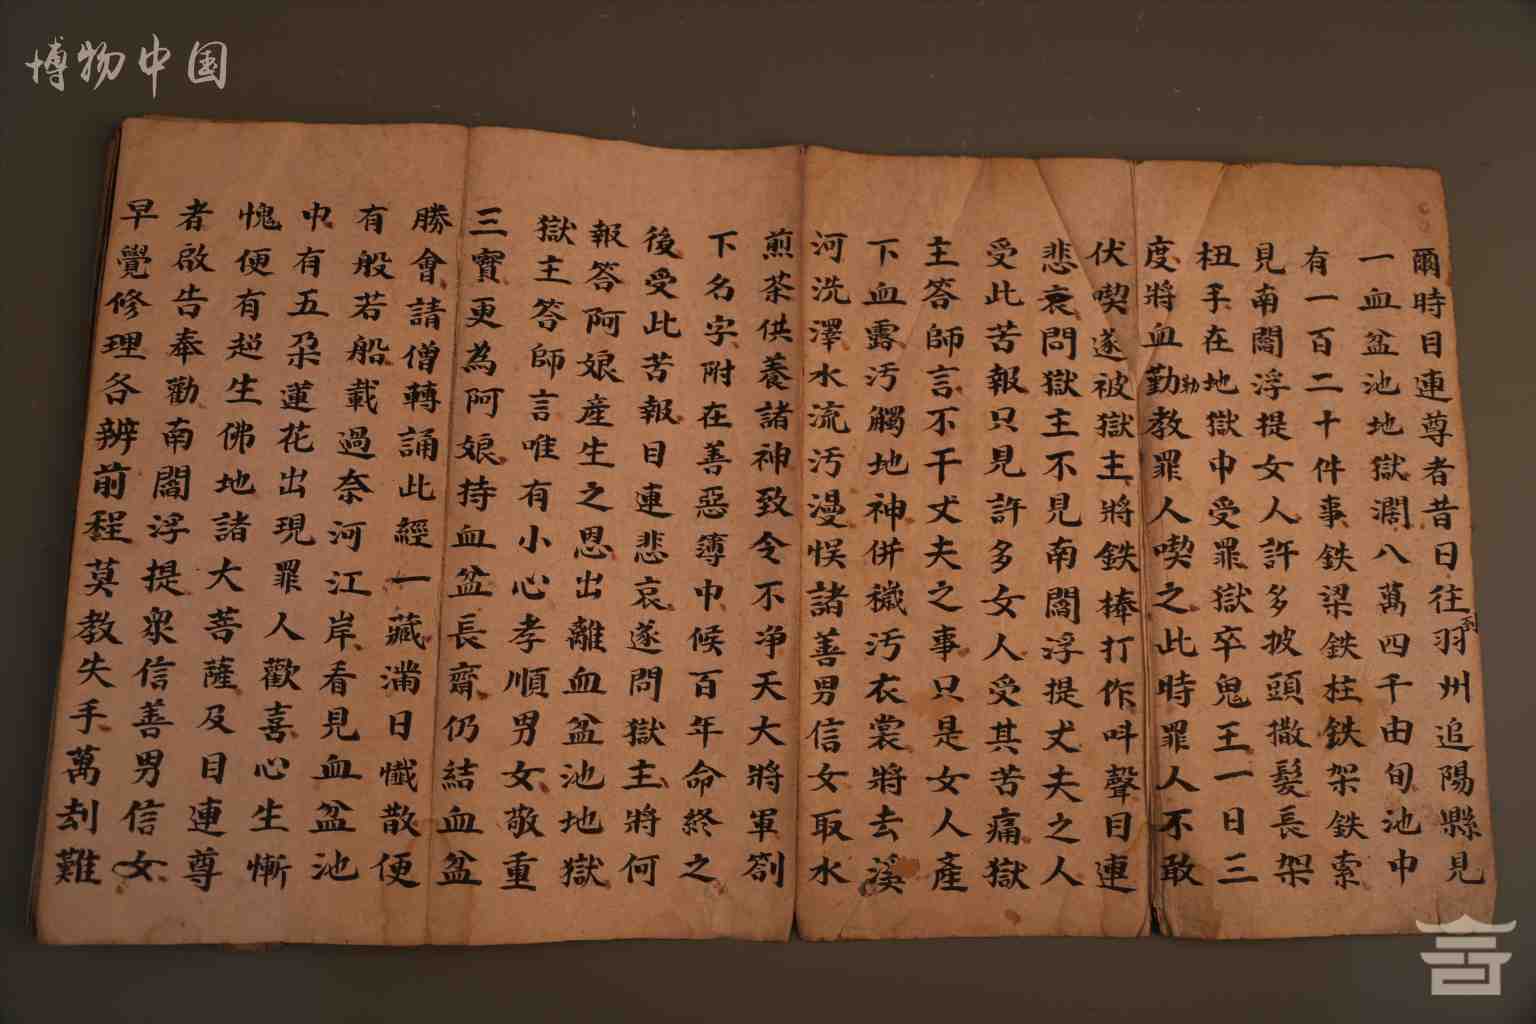 博物中国
爾時目連尊者昔日往到羽州追陽縣見
一血盆池地獄濶八萬四千由旬池中
有一百二十件事鉄梁鉄柱鉄架鉄索
見南閻浮提女人許多披頭撒髮長架
杻手在地獄中受罪獄卒鬼王一日三
度將血勤勒教罪人喫之此時罪人不敢
伏喫遂被獄主將鉄棒打作呌聲目連
悲哀問獄主不見南閻浮提丈夫之人
受此苦報只見許多女人受其苦痛獄
主答師言不干丈夫之事只是女人產
下血露汚觸地神併穢汚衣裳將去溪
河洗澤水流汚漫悮諸善男信女取水
煎茶供養諸神致令不净天大將軍劄
下名字附在善惡簿中候百年命終之
後受此苦報目連悲哀遂問獄主將何
報答阿娘產生之恩出離血盆池地獄
獄主答師言唯有小心孝順男女敬重
三寳更為阿娘持血盆長齋仍結血盆
勝會請僧轉誦此經一藏滿日懺散便
有般若船載過奈河江岸看見血盆池
中有五朶蓮花出現罪人歡喜心生慚
愧便有超生佛地諸大菩薩及目連尊
者啟告奉勸南閻浮提衆信善男信女
早覺修理各辨前程莫教失手萬刦難